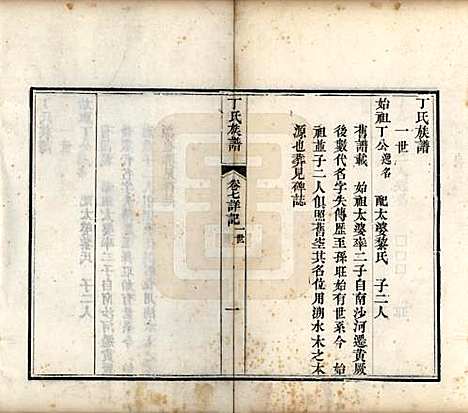 丁氏族譜
一世
始祖丁公逸名　配太婆黎氏　子二人
舊譜載　始祖太婆率二子自南沙河遷黃厥
後數代名字失傳歷至孫旺始有世系今　始
祖並子二人俱照舊空其名位用溯水木之本
源也葬見碑誌
丁氏族譜
卷七詳記　一世
一